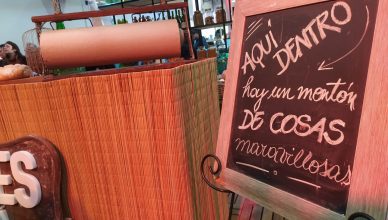 AQUÍ
DENTRO
hay un montón
DE COSAS
maravillosas
ES